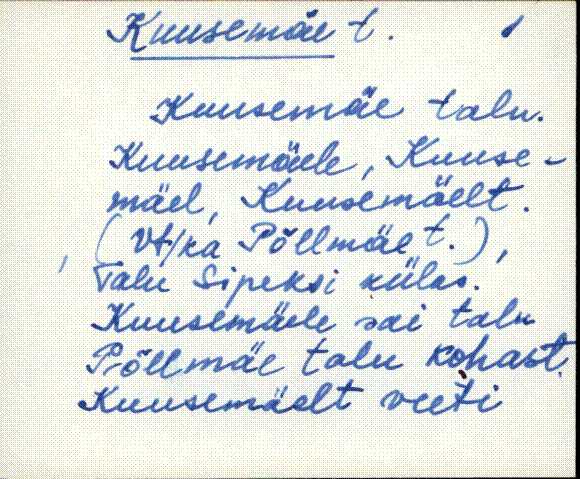 Kuusemäe t. 1
Kuusemäe talu.
Kuusemäele, Kuuse-
mäel, Kuusemäelt.
(Vt/ka Põllmäe t.),
Talu Sipeksi külas.
Kuusemäele sai talu
Põllmäe talu kohast.
Kuusemäelt veeti